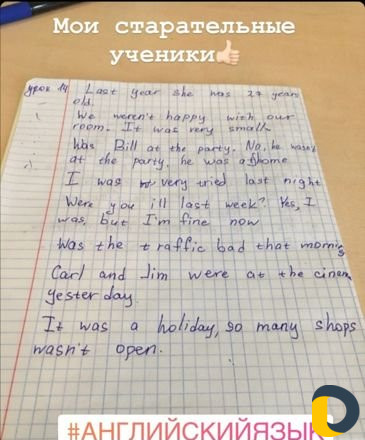 Мои старательные
ученики👍🏻
урок 14 Last year she was 27 years
old.
We weren't happy with our
room. It was very small.
Was Bill at the party. No, he wasn't
at the party, he was at home
I was very tried last night
Were you ill last week? Yes, I
was, but I'm fine now
Was the traffic bad that morning
Carl and Jim were at the cinema
yesterday.
It was a holiday, so many shops
wasn't open.
#АНГЛИЙСКИЙЯЗЫК